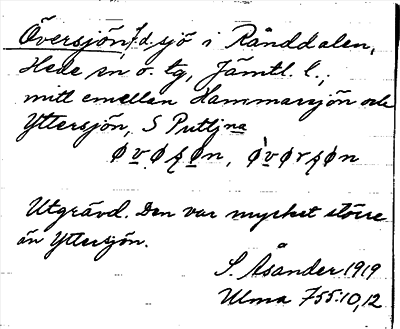 Översjön, f.d. sjö i Rånddalen,
Hede sn o. tg, Jämtl. l.;
mitt emellan Hammarsjön och
Yttersjön, S Puttjna
Utgrävd. Den var mycket större
än Yttersjön.
S. Åsander 1919
Ulma 755:10,12